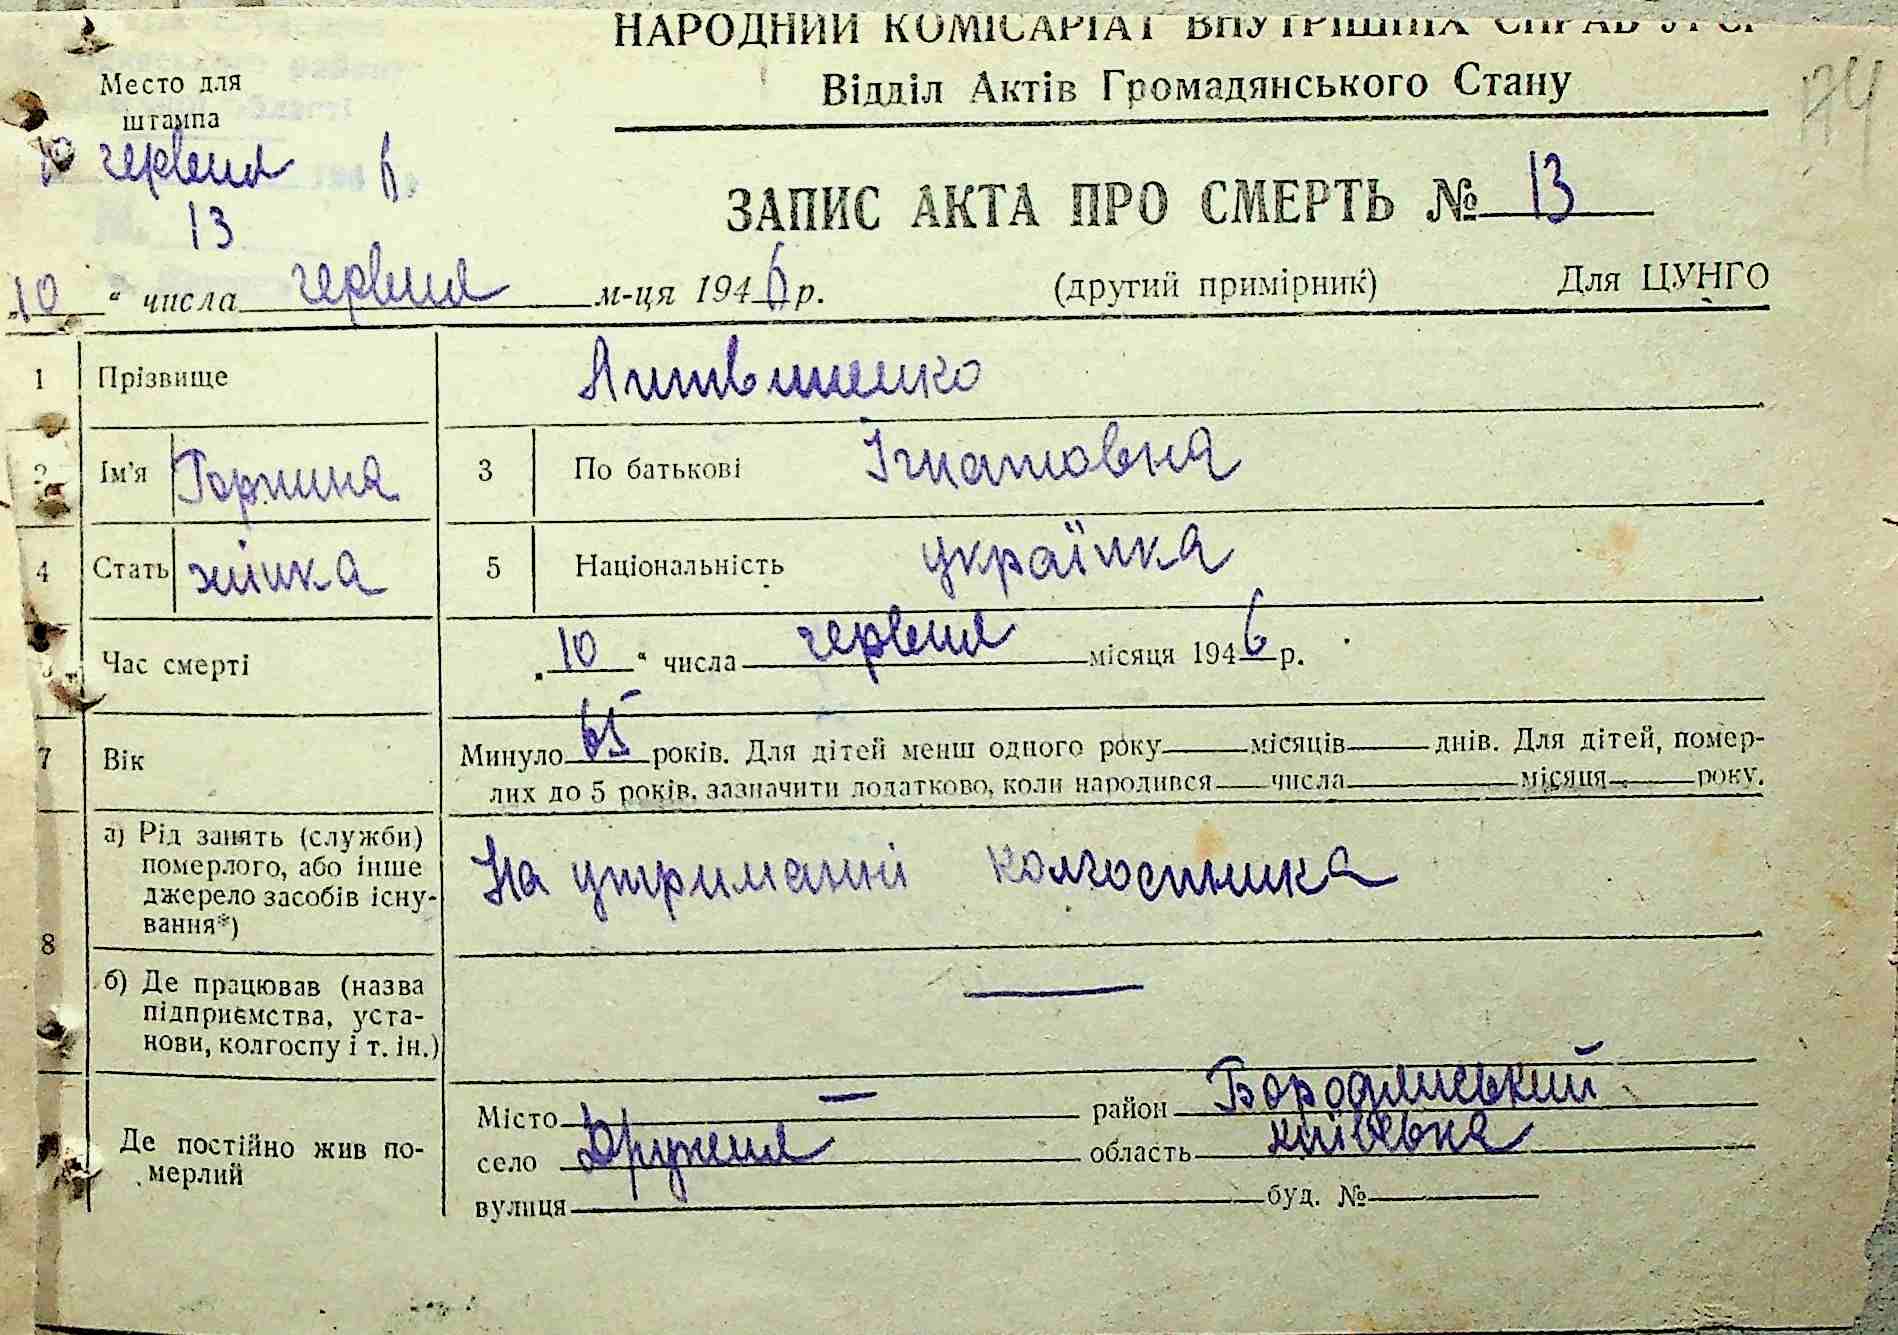 НАРОДНИЙ КОМІСАРІАТ ВНУТРІШНІХ СПРАВ УРСР
Відділ Актів Громадянського Стану
174
Место для
штампа
10 червня 6
13
ЗАПИС АКТА ПРО СМЕРТЬ № 13
„10 “ числа червня м-ця 1946 р. (другий примірник) Для ЦУНГО
1 Прізвище Литвиненко
2 Ім'я Горпина 3 По батькові Ігнатовна
4 Стать жінка 5 Національність українка
Час смерті „10 “ числа червня місяця 1946 р.
7 Вік Минуло 65 років. Для дітей менш одного року місяців днів. Для дітей, помер-
лих до 5 років, зазначити додатково, коли народився числа місяця року.
8 а) Рід занять (служби)
померлого, або інше
джерело засобів існу-
вання*)
На утриманні колгоспника
б) Де працював (назва
підприємства, уста-
нови, колгоспу і т. ін.)
—
Де постійно жив по-
мерлий
Місто — район Бородянський
село Дружня область київська
вулиця буд. №